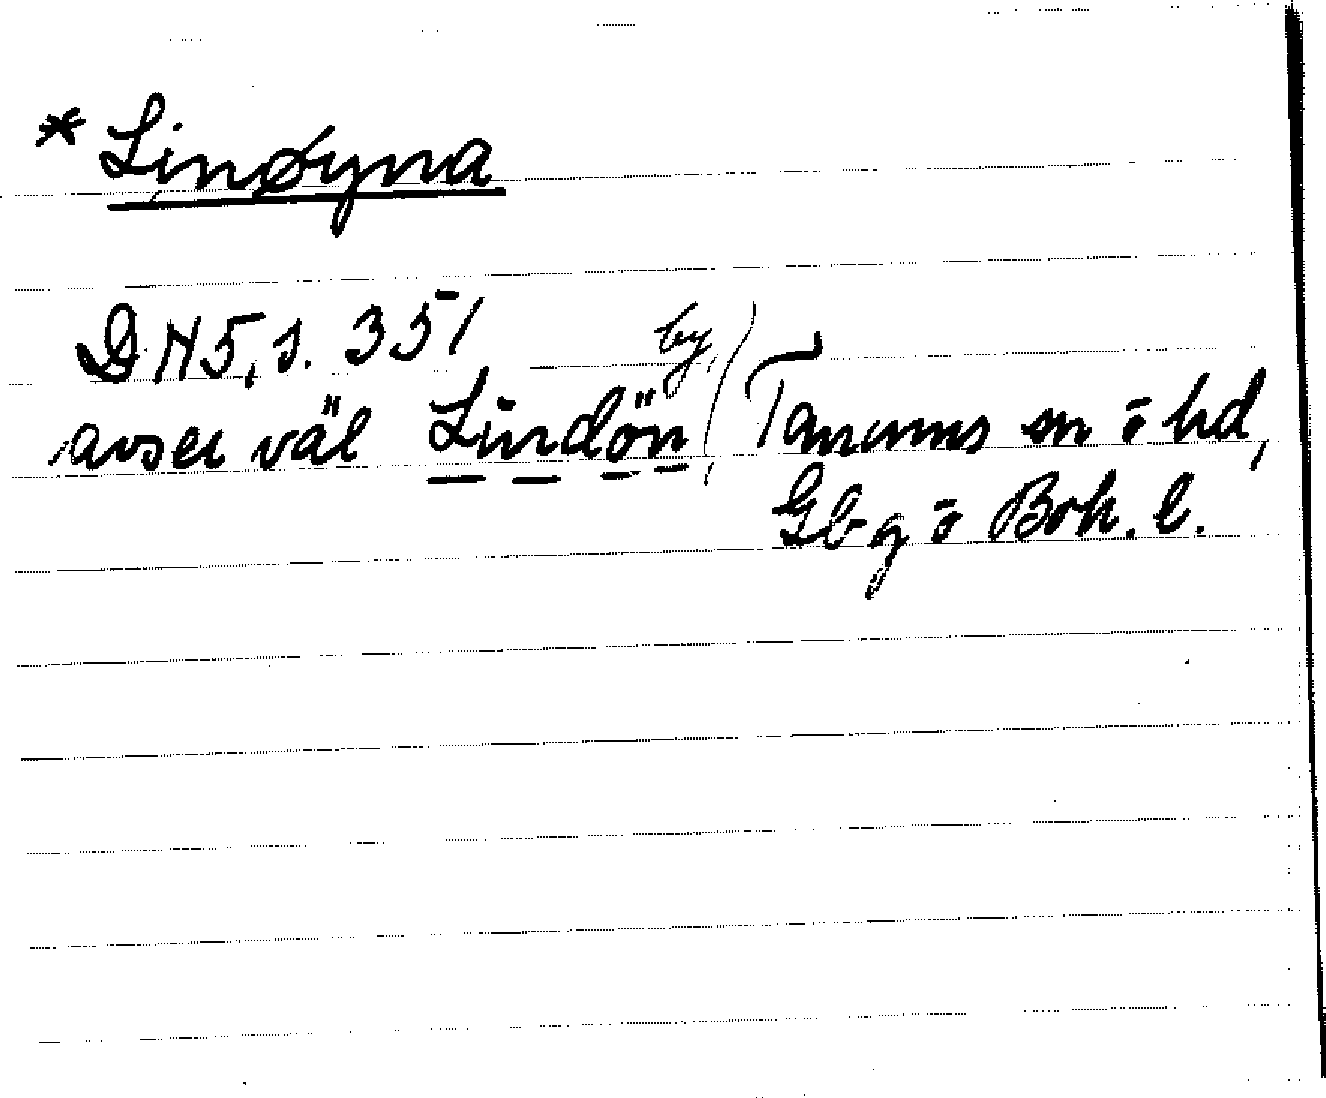 * Linøyna
DN 5, s. 351
avser väl Lindön, by, Tanums sn o hd,
Gbg o Boh. l.